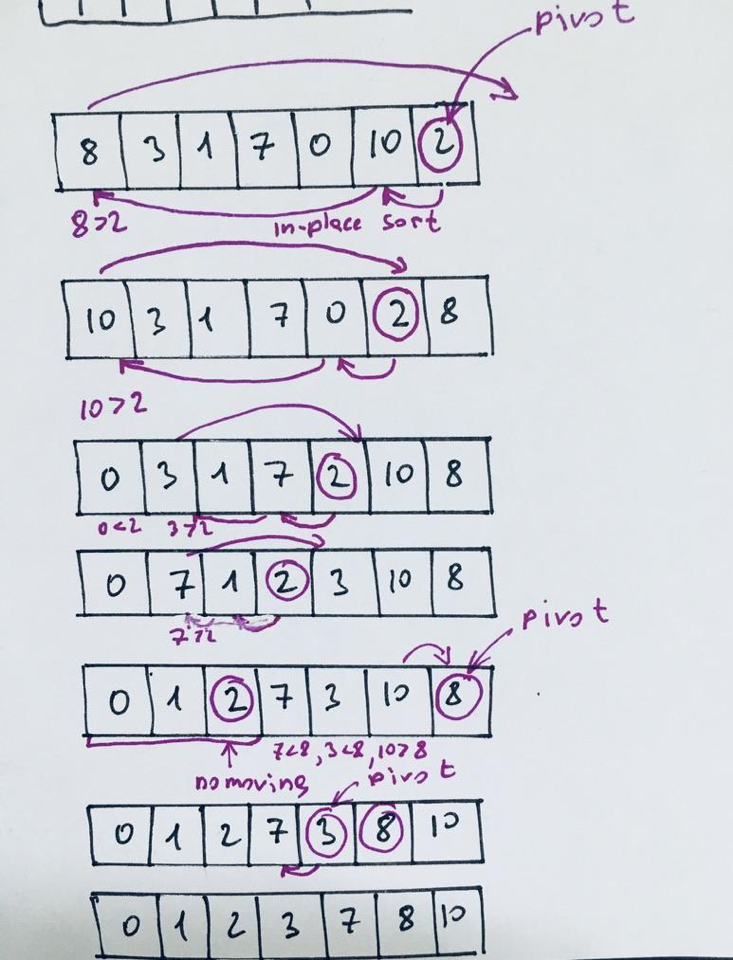 pivot
8 3 1 7 0 10 2
8>2 in-place sort
10 3 1 7 0 2 8
10>2
0 3 1 7 2 10 8
0<2 3>2
0 7 1 2 3 10 8
7>2
pivot
0 1 2 7 3 10 8
7<8, 3<8, 10>8
no moving pivot
0 1 2 7 3 8 10
0 1 2 3 7 8 10